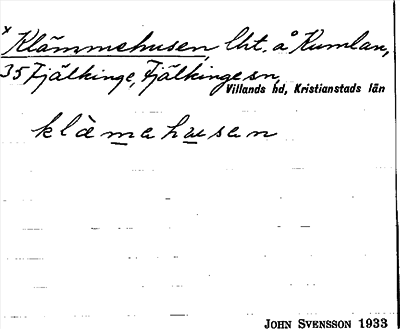 x Klämmehusen, lht. å Rumlan,
35 Fjälkinge, Fjälkinge sn,
Villands hd, Kristianstads län
klämehusen
JOHN SVENSSON 1933